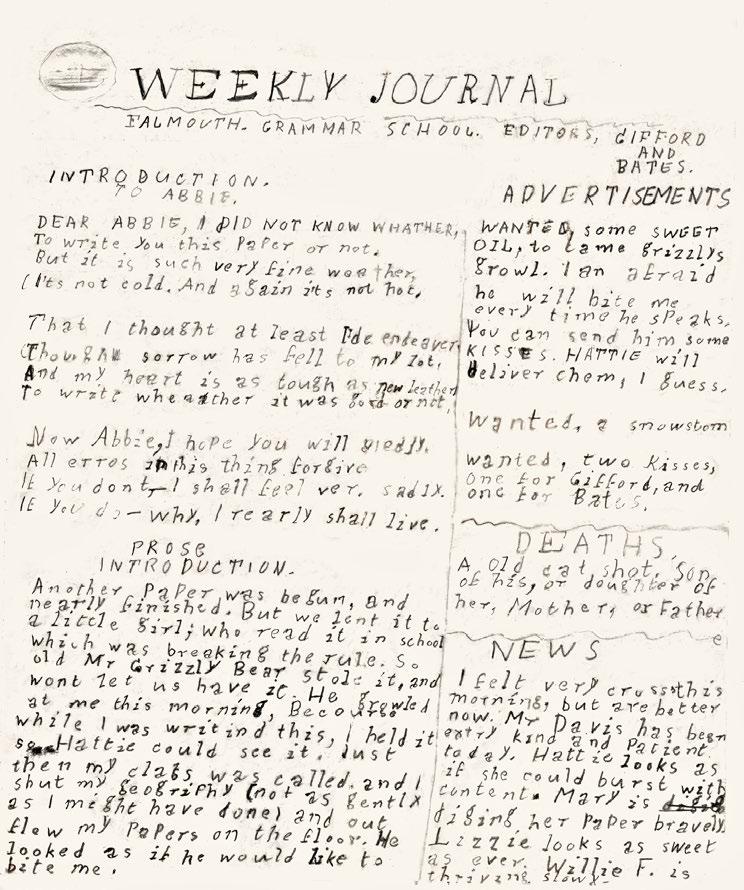 WEEKLY JOURNAL
FALMOUTH. GRAMMAR SCHOOL. EDITORS, GIFFORD
AND
BATES.
INTRODUCTION.
TO ABBIE.
DEAR ABBIE, I DID NOT KNOW WHATHER,
To write you this Paper or not.
But it is such very fine weather,
(It's not cold. And again its not hot.
That I thought at least I'de endeaver
(Though sorrow has fell to my lot,
And my heart is as tough as new leather
To write wheather it was good or not.
Now Abbie, I hope you will gledly.
All erros in this thing forgive
If you dont, I shall feel ver. sadly.
If you do— why, I rearly shall live.
PROSE
INTRODUCTION.
Another Paper was begun, and
nearly finished. But we lent it to
a little girl; who read it in school
which was breaking the rule. So
old Mr Grizzly Bear stole it, and
wont let us have it. He growled
at me this morning, Becourse
while I was writind this, I held it
so Hattie could see it. Just
them my class was called. and I
shut my geogrifhy (not as gently
as I might have done) and out
flew my Papers on the floor. He
looked as if he would like to
bite me.
ADVERTISEMENTS
WANTED, some SWEET
OIL, to tame grizzlys
growl. I an afraid
he will bite me
every time he speaks.
You can send him some
KISSES. HATTIE will
deliver them, I guess.
Wanted, a snowstom
wanted, two Kisses,
one for Gifford, and
one for Bates.
DEATHS.
A old cat shot. Son
of his, or doughter of
her, Mother, or Father
NEWS
I felt very cross this
morning, but are better
now. Mr Davis has been
extry kind and Patient
today. Hattie looks as
if she could burst with
content. Mary is
diging her Paper bravely
Lizzie looks as sweet
as ever. Willie F. is
thriving slowly.